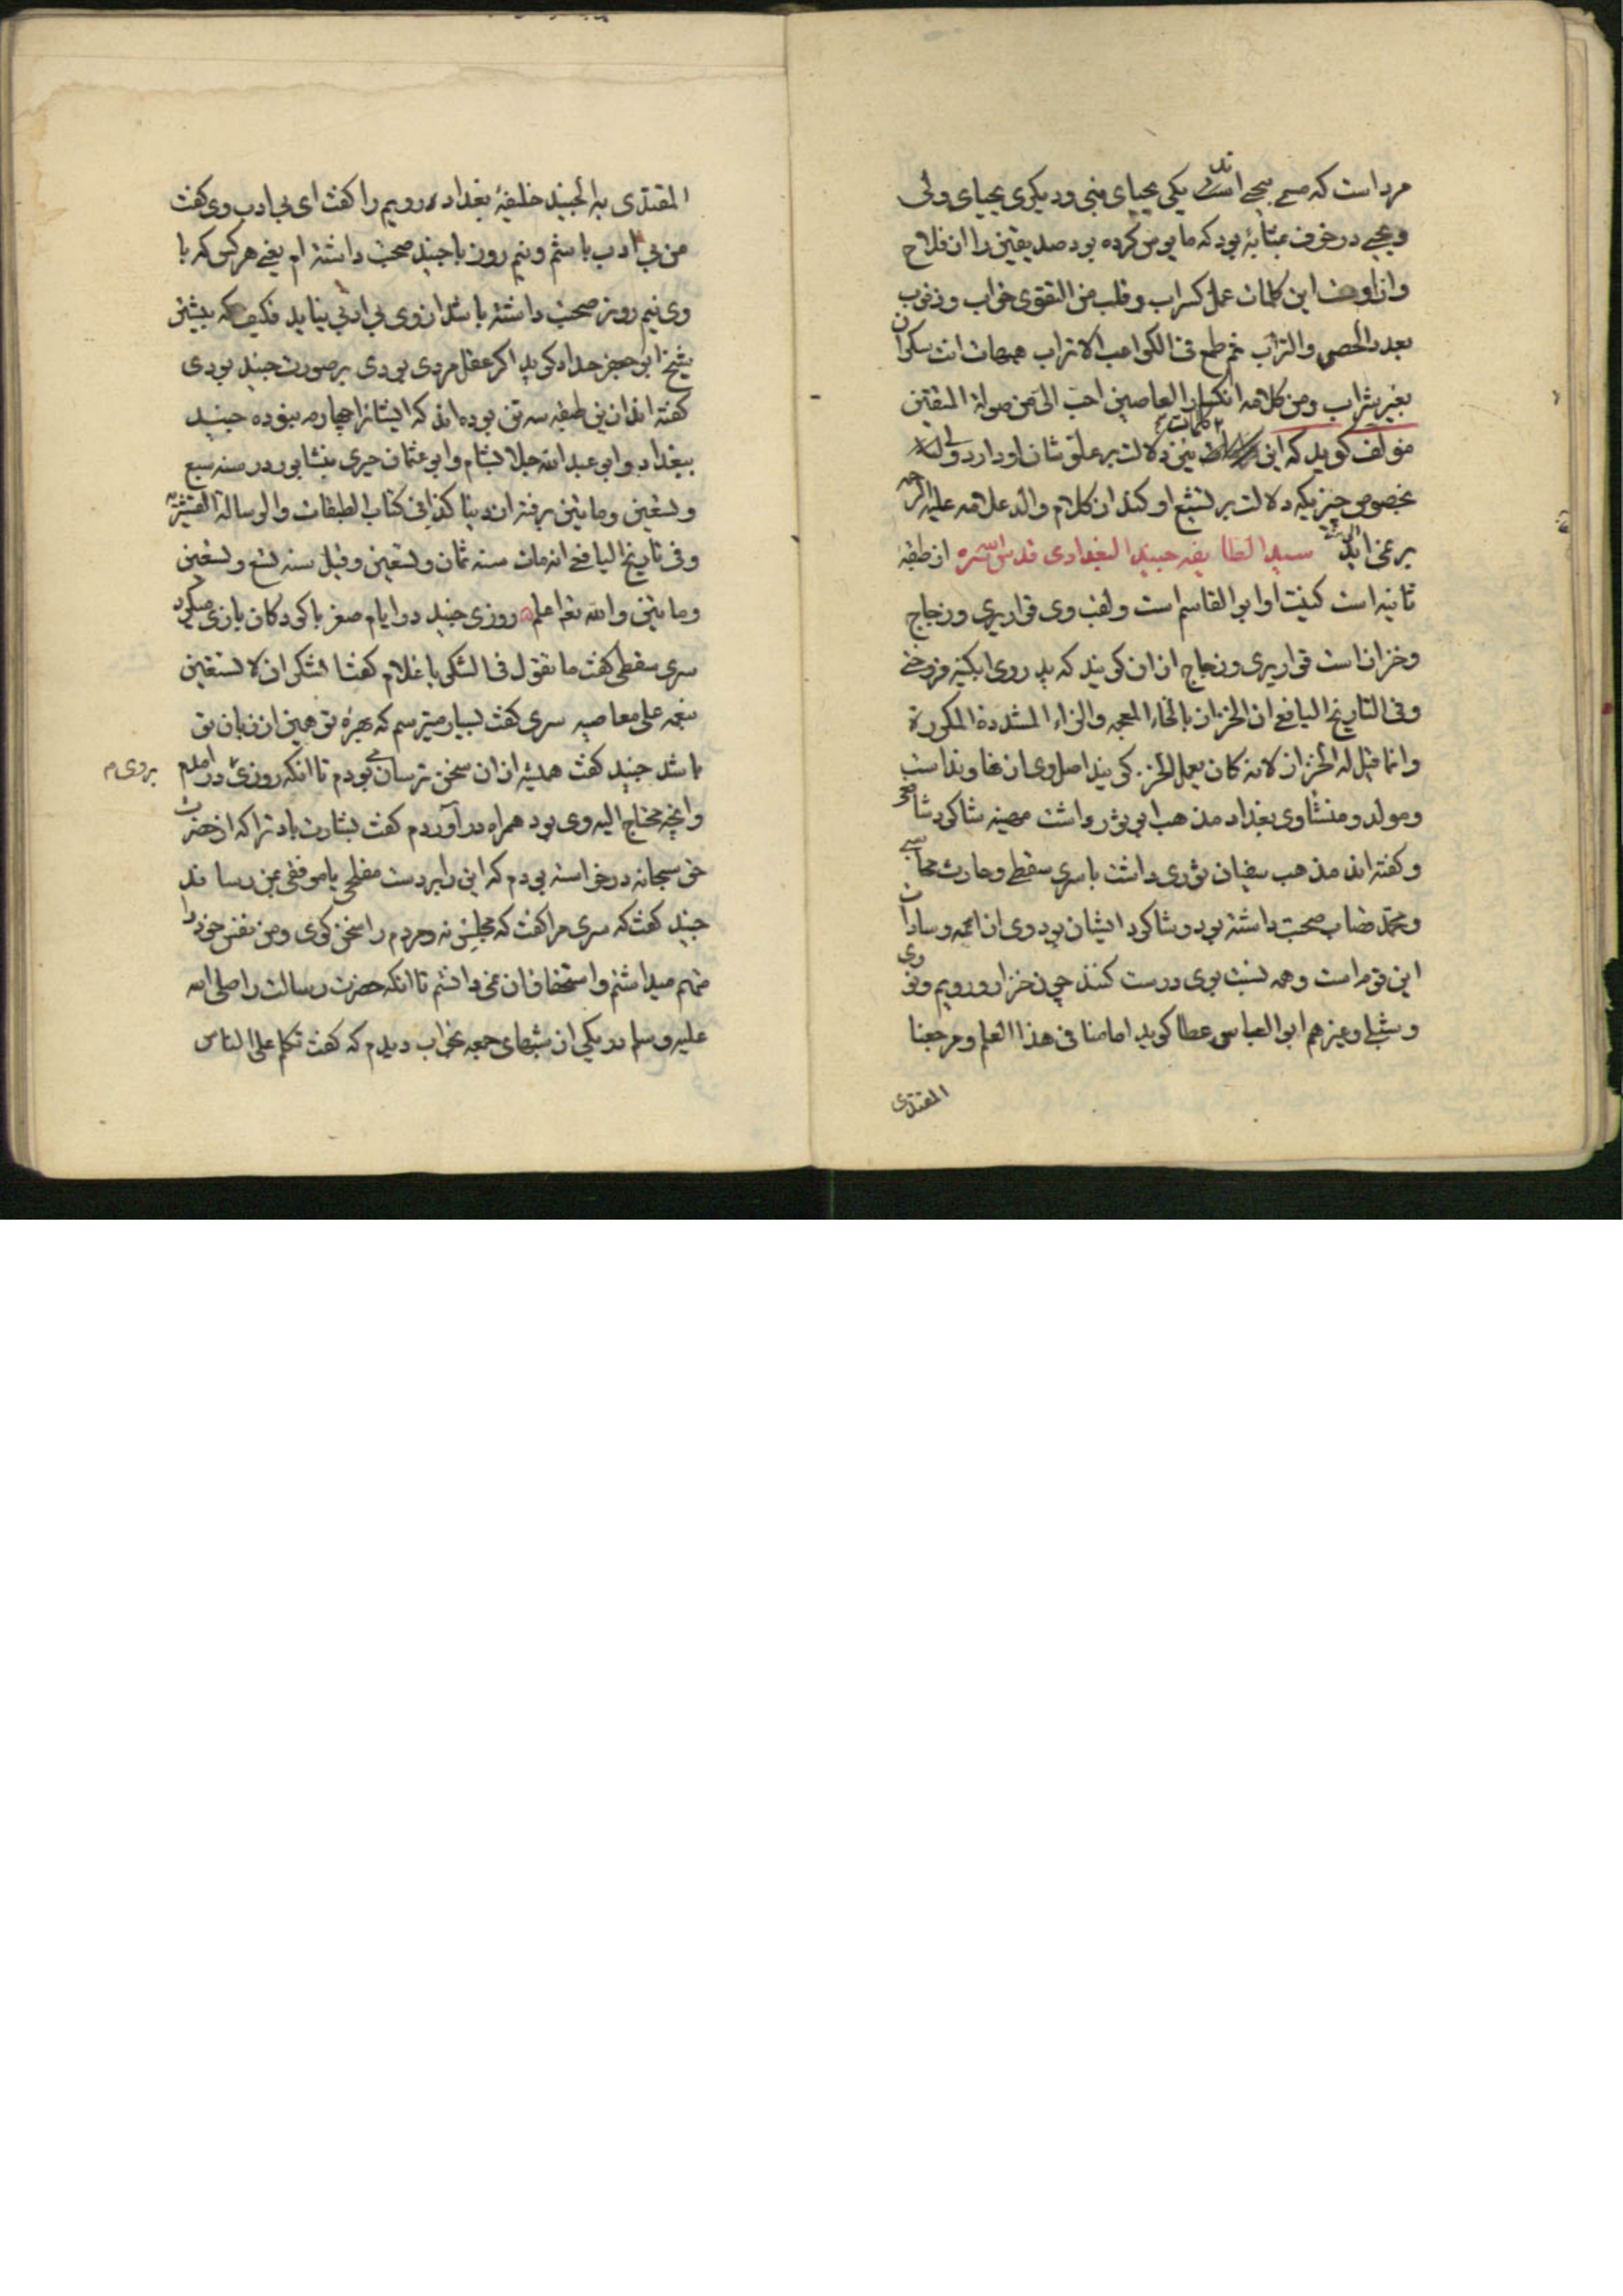 مرد است که مسمی بیحیی اند یکی یحیای نبی و دیکری یحیای ولی
و یحیی در خوف بمثابهٔ بود که مایوس کرده بود صدیقین را از فلاح
و از اوست این کلمات عمل کسراب و قلب من التقوی خراب و ذنوب
بعدد الحصی والتراب ثم طمع فی الکواعب الاتراب هیهات انت سکران
بغیر شراب ومن کلامه انکسار العاصین احب الی من صولة المتقین
مؤلف کوید که این کلمات نیز دلالت بر علو شان او دارد ولی
بخصوص چیزیکه دلالت بر تشیع او کند از کلام والد علامه علیه الرحمه
بر نمی اید سید الطایفه جنید البغدادی قدس سره از طبقهٔ
ثانیه است کنیت او ابو القاسم است ولقب وی قواریری وزجاج
وخزاز است قواریری وزجاج از ان کویند که پدر وی ابکینه فروختی
وفی التاریخ الیافعی ان الخزاز بالخاء المعجمه والزاء المشددة المکررة
وانما قیل له الخزاز لانه کان یعمل الخز کویند اصل وی از نهاوند است
ومولد ومنشا وی بغداد مذهب ابو ثور داشت مهینه شاکرد شافعی
وکفته اند مذهب سفیان ثوری داشت با سری سقطی وحارث محاسبی
ومحمد قصاب صحبت داشته بود وشاکرد ایشان بود وی از ائمه وسادات
این قوم است وهمه نسبت بوی درست کنند چون خراز ورویم ونوری
وشبلی وغیرهم ابو العباس عطا کوید امامنا فی هذا العلم ومرجعنا
المقتدی
المقتدی به الجنید خلیفهٔ بغداد رویم را کفت ای بی ادب وی کفت
من بی ادب باشم ونیم روز با جنید صحبت داشته ام یعنی هر کس که با
وی نیم روز صحبت داشته باشد از وی بی ادبی نیاید فکیف که بیشتر
شیخ ابو جعفر حداد کوید اکر عقل مردی بودی بر صورت جنید بودی
کفته اند از این طبقه سه تن بوده اند که ایشانرا چهارم نبوده جنید
ببغداد وابو عبد الله جلا بشام وابو عثمان حیری بنیشابور در سنه سبع
وتسعین ومایتین برفته از دنیا کذا فی کتاب الطبقات والرسالة القشیریه
وفی تاریخ الیافعی انه مات سنه ثمان وتسعین وقیل سنه تسع وتسعین
ومایتین والله تعم اعلم روزی جنید در ایام صغر با کودکان بازی میکرد
سری سقطی کفت ما تقول فی الشکر یا غلام کفت الشکر ان لا تستعین
بنعمه علی معاصیه سری کفت بسیار میترسم که بهرهٔ تو همین از زبان تو
باشد جنید کفت همیشه از ان سخن ترسان می بودم تا انکه روزی در امدم
بروی م
وانچه محتاج الیه وی بود همراه در آوردم کفت بشارت باد ترا که از حضرت
حق سبحانه درخواسته بودم که این را بر دست مفلحی یا موفقی بمن رساند
جنید کفت که سری مرا کفت که مجلس نه ومردم را سخن کوی ومن نفس خود را
متهم میداشتم واستحقاق ان نمی دانستم تا انکه حضرت رسالت را صلی الله
علیه وسلم در یکی از شبهای جمعه بخواب دیدم که کفت تکلم علی الناس